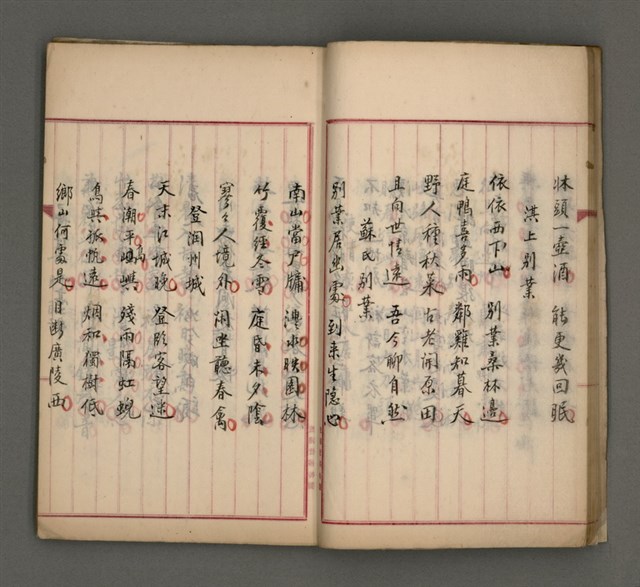 牀頭一壺酒 能更幾回眠
淇上別業
依依西下山 別業桑林邊
庭鴨喜多雨 鄰雞知暮天
野人種秋菜 古老開原田
且向世情遠 吾今聊自然
蘇氏別業
別業居幽處 到來生隱心
南山當戶牖 澧水映園林
竹覆經冬雪 庭昏未夕陰
寥々人境外 閒坐聽春禽
登潤州城
天末江城晚 登臨客望迷
春潮平島嶼 殘雨隔虹蜺
鳥共孤帆遠 烟和獨樹低
鄉山何處是 目斷廣陵西